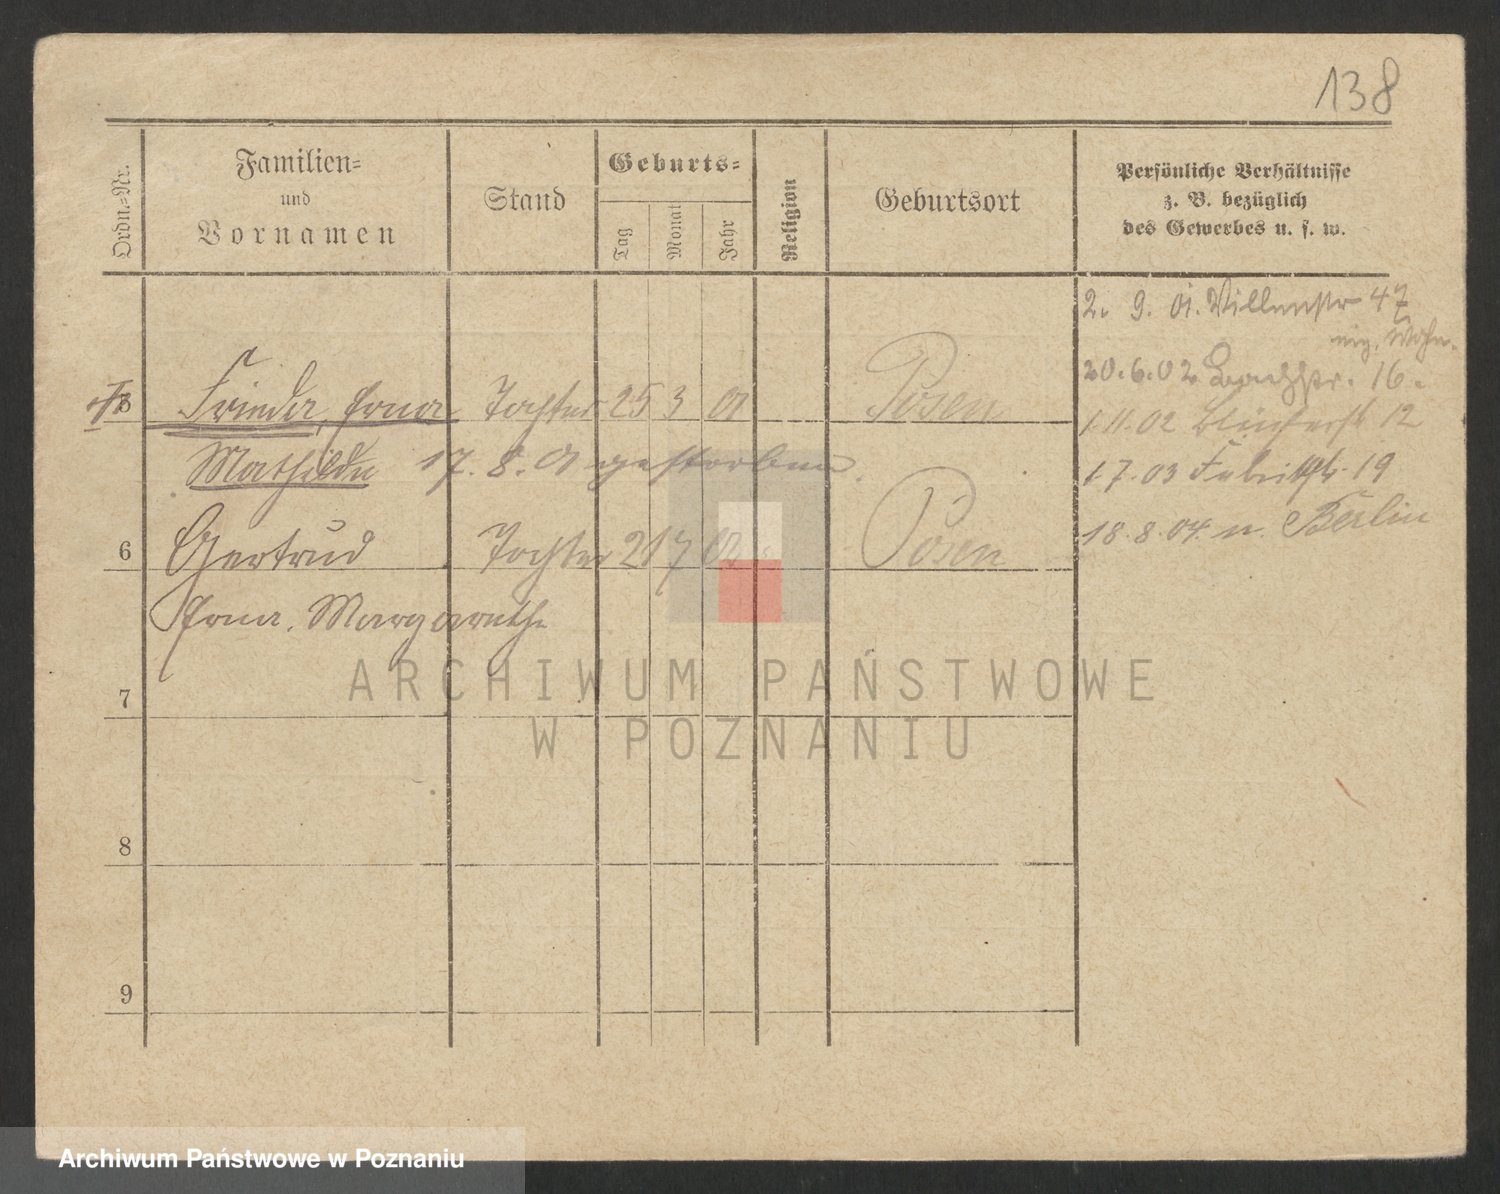 138
Ordn.-Nr.
Familien-
und
Vornamen
Stand
Geburts-
Tag
Monat
Jahr
Religion
Geburtsort
Persönliche Verhältnisse
z. B. bezüglich
des Gewerbes u. s. w.
2. 9. 01. Villenstr 47
eig. Wohn.
5 Frieda, Erna Tochter 25 3 01 Posen
20.6.02 Bachstr. 16.
1.11.02 Blücherstr 12
Mathilde 17. 8. 01 gestorben.
1.7.03 19
6 Gertrud Tochter 21 7 02 Posen
18.8.04. n. Berlin
Erna, Margarethe
7
8
9
ARCHIWUM PAŃSTWOWE
W POZNANIU
Archiwum Państwowe w Poznaniu